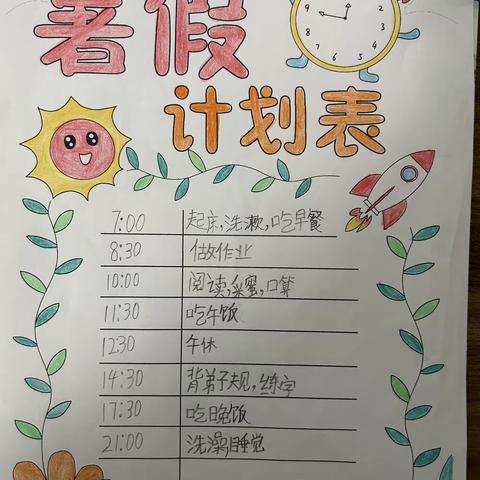 暑假
计划表
7:00 起床,洗漱,吃早餐
8:30 做作业
10:00 阅读,采蜜,口算
11:30 吃午饭
1230 午休
14:30 背弟子规,练字
17:30 吃晚饭
21:00 洗澡,睡觉